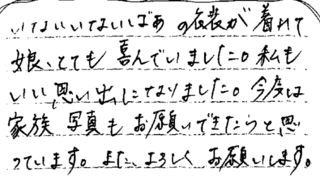 いないいないばあ の衣装が 着れて
娘、とても 喜んでいました。私も
いい思い出になりました。今度は
家族 写真も お願いできたらと思
っています。また、よろしく お願いします。